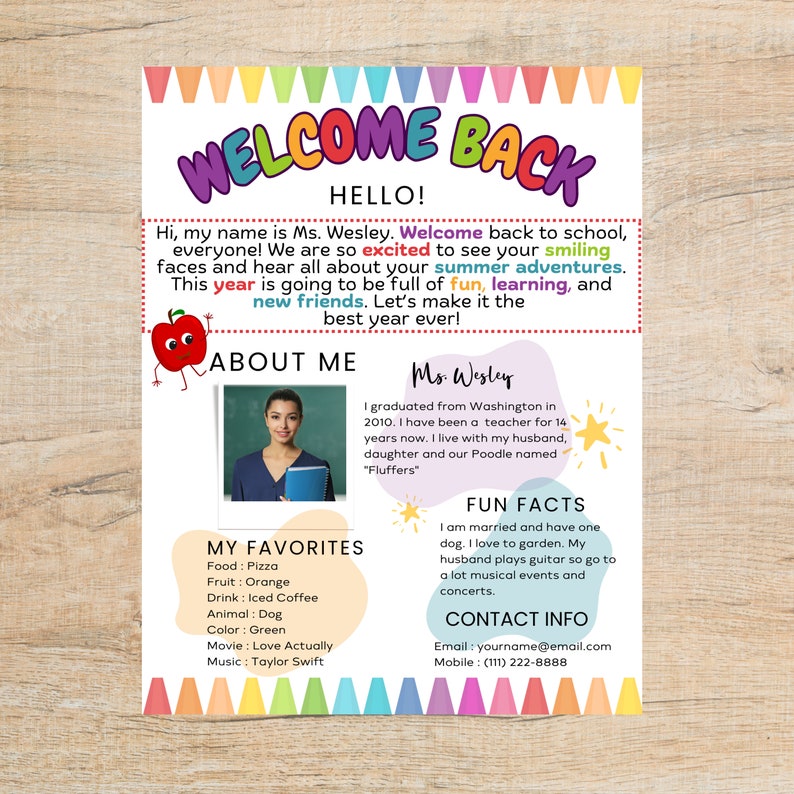 WELCOME BACK
HELLO!
Hi, my name is Ms. Wesley. Welcome back to school,
everyone! We are so excited to see your smiling
faces and hear all about your summer adventures.
This year is going to be full of fun, learning, and
new friends. Let's make it the
best year ever!
ABOUT ME
Ms. Wesley
I graduated from Washington in
2010. I have been a teacher for 14
years now. I live with my husband,
daughter and our Poodle named
"Fluffers"
FUN FACTS
I am married and have one
dog. I love to garden. My
husband plays guitar so go to
a lot musical events and
concerts.
MY FAVORITES
Food : Pizza
Fruit : Orange
Drink : Iced Coffee
Animal : Dog
Color : Green
Movie : Love Actually
Music : Taylor Swift
CONTACT INFO
Email : yourname@email.com
Mobile : (111) 222-8888